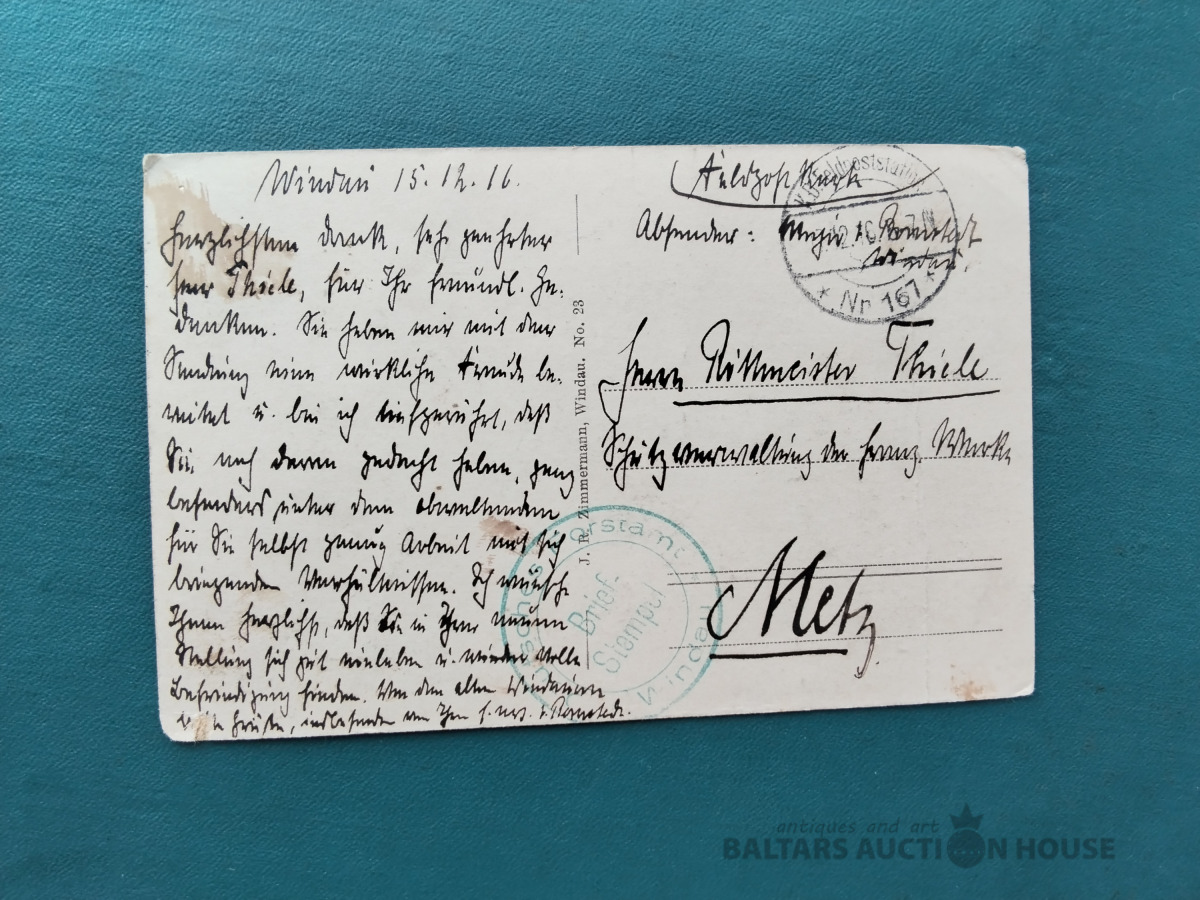 Windau 15.12.16.
Herzlichsten Dank, sehr geehrter
Herr Thiele, für Ihr freundl. Ge-
denken. Sie haben mir mit der
Sendung eine wirkliche Freude be-
reitet u. bin ich tiefgerührt, daß
Sie noch daran gedacht haben, ganz
besonders unter den obwaltenden
für Sie selbst genug Arbeit mit sich
bringenden Verhältnissen. Ich wünsche
Ihnen herzlichst, daß Sie in Ihrer neuen
Stellung sich gut einleben u. wieder volle
Befriedigung finden. Von den alten Windauern
Grüße, insbesondere von Ihrem
J. R. Zimmermann, Windau. No. 23
Feldpostkarte
Absender:
Windau.
Feldpoststation
* Nr 167 *
Herrn Rittmeister Thiele
Schutzverwaltung der franz. Werke
Metz
Forstamt
Brief-
Stempel
Windau
antiques and art
BALTARS AUCTION HOUSE